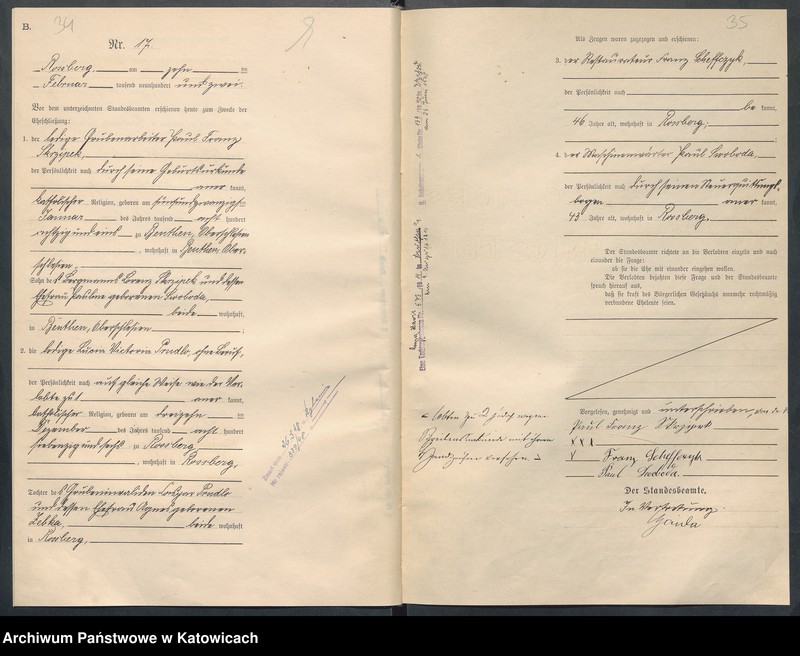 B.
34
Nr. 17.
Rossberg am zehn ten
Februar tausend neunhundert und zwei.
Vor dem unterzeichneten Standesbeamten erschienen heute zum Zwecke der
Eheschließung:
1. der ledige Grubenarbeiter Paul Franz
Skrzipek,
der Persönlichkeit nach durch seine Geburtsurkunde
aner kannt,
katholischer Religion, geboren am fünfundzwanzigsten
Januar des Jahres tausend acht hundert
achtzig und eins zu Beuthen, Oberschlesien
, wohnhaft in Beuthen, Ober-
schlesien,
Sohn des Bergmanns Lorenz Skrzipek und dessen
Ehefrau Pauline geborenen Swoboda,
beide wohnhaft
in Beuthen, Oberschlesien
2. die ledige Lucia Victoria Prudlo, ohne Beruf,
der Persönlichkeit nach auf gleiche Weise wie der Ver-
lobte zu 1. aner kannt,
katholischer Religion, geboren am dreizehn ten
Dezember des Jahres tausend acht hundert
siebenzig und sechs zu Rossberg
, wohnhaft in Rossberg,
Tochter des Grubeninvaliden Prudlo
und dessen Ehefrau Agnes geborenen
beide wohnhaft
in Rossberg,
35
Als Zeugen waren zugezogen und erschienen:
3. der Restaurateur Franz Scheffczyk,
der Persönlichkeit nach
be kannt,
46 Jahre alt, wohnhaft in Rossberg;
4. der Maschinenwärter Paul Swoboda,
der Persönlichkeit nach durch seinen Steuerquittungs-
bogen aner kannt,
43 Jahre alt, wohnhaft in Rossberg.
Der Standesbeamte richtete an die Verlobten einzeln und nach
einander die Frage:
ob sie die Ehe mit einander eingehen wollen.
Die Verlobten bejahten diese Frage und der Standesbeamte
sprach hierauf aus,
daß sie kraft des Bürgerlichen Gesetzbuchs nunmehr rechtmäßig
verbundene Eheleute seien.
Vorgelesen, genehmigt und unterschrieben, von der
Paul Franz Skrzipek
XXX
Franz Scheffczyk
Paul Swoboda
lobten zu 2 jedoch wegen
Schreibensunkunde mit ihrem
Handzeichen versehen.
Der Standesbeamte.
In Vertretung.
Archiwum Państwowe w Katowicach